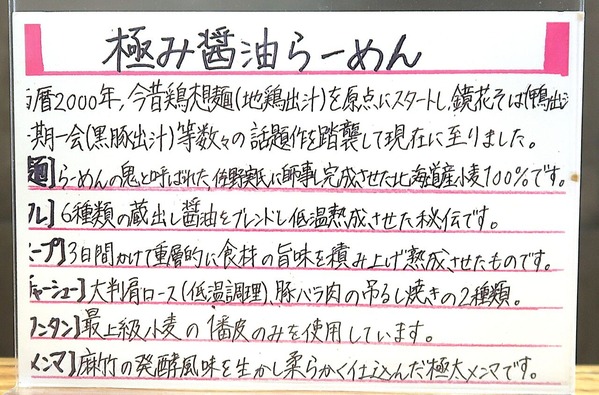 極み醤油らーめん
西暦2000年、今昔鶏想麺(地鶏出汁)を原点にスタートし、鏡花そば(鴨出汁)
一期一会(黒豚出汁)等数々の話題作を踏襲して現在に至りました。
麺】らーめんの鬼と呼ばれた、佐野実氏に師事し完成させた北海道産小麦100%です。
タレ】6種類の蔵出し醤油をブレンドし低温熟成させた秘伝です。
スープ】3日間かけて重層的に食材の旨味を積み上げ熟成させたものです。
チャーシュー】大判肩ロース(低温調理)、豚バラ肉の吊るし焼きの2種類。
ワンタン】最上級小麦の1番皮のみを使用しています。
メンマ】麻竹の発酵風味を生かし柔らかく仕込んだ極太メンマです。